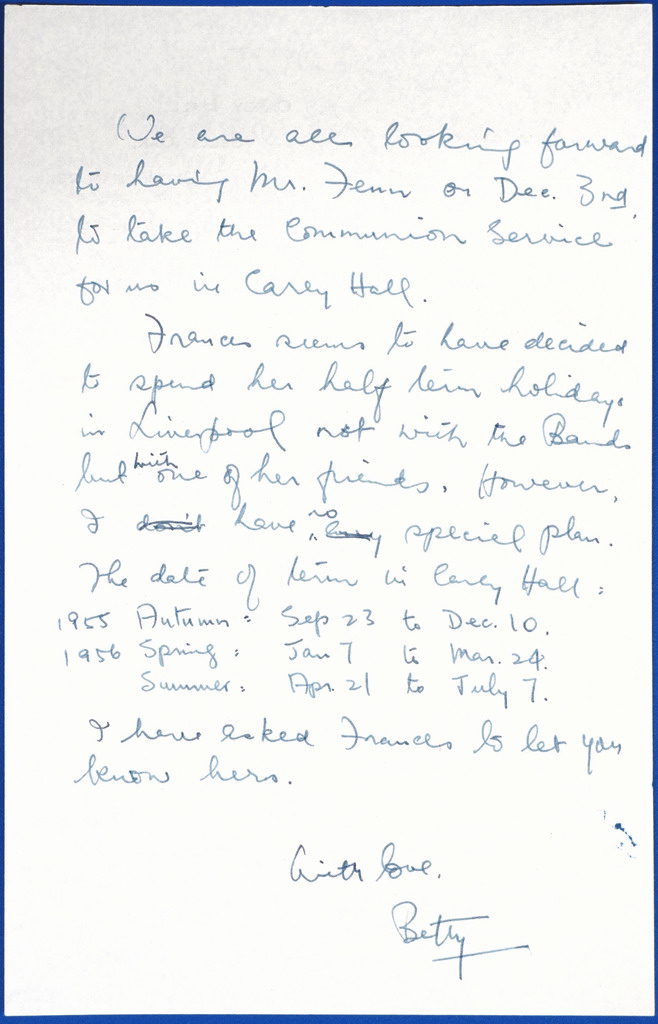 We are all looking forward
to having Mr. Fenn on Dec. 3rd,
to take the Communion Service
for us in Carey Hall.
Frances seems to have decided
to spend her half term holidays
in Liverpool not with the Bands
but with one of her friends. However,
I don't have no any special plan.
The date of term in Carey Hall:
1955 Autumn: Sep 23 to Dec. 10.
1956 Spring: Jan 7 to Mar. 24.
Summer: Apr. 21 to July 7.
I have asked Frances to let you
know hers.
With love.
Betty